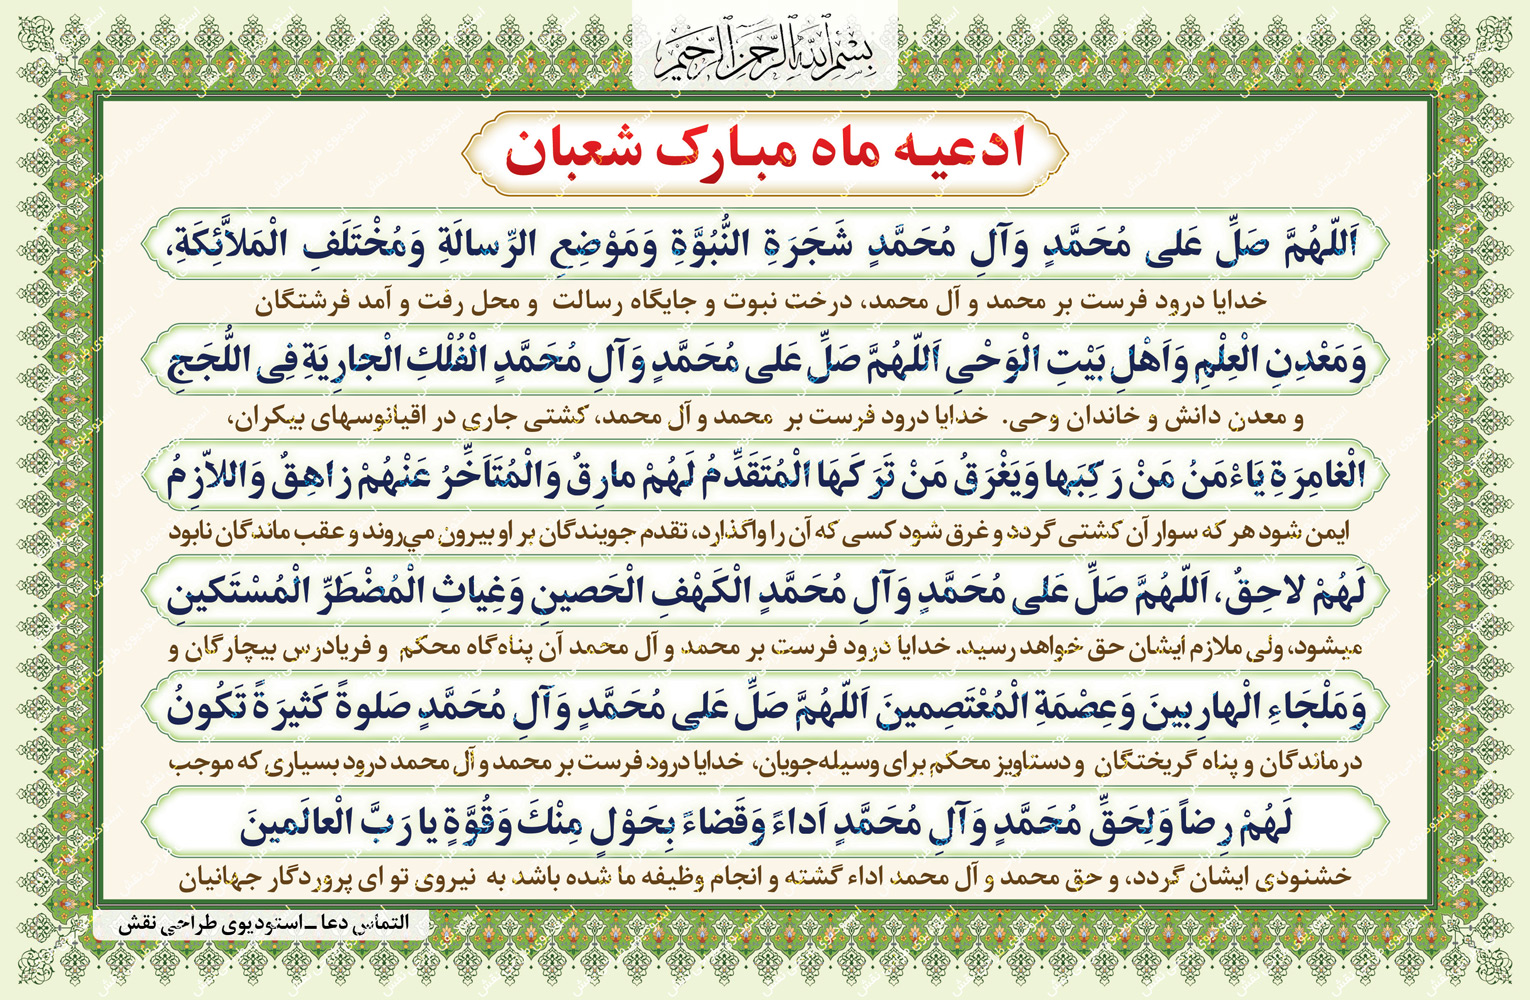 بسم الله الرحمن الرحیم
ادعیه ماه مبارک شعبان
اَللّهُمَّ صَلِّ عَلى مُحَمَّدٍ وَآلِ مُحَمَّدٍ شَجَرَةِ النُّبُوَّةِ وَمَوْضِعِ الرِّسالَةِ وَمُخْتَلَفِ الْمَلاَّئِكَةِ،
خدایا درود فرست بر محمد و آل محمد، درخت نبوت و جایگاه رسالت و محل رفت و آمد فرشتگان
وَمَعْدِنِ الْعِلْمِ وَاَهْلِ بَيْتِ الْوَحْىِ اَللّهُمَّ صَلِّ عَلى مُحَمَّدٍ وَآلِ مُحَمَّدٍ الْفُلْكِ الْجارِيَةِ فِى اللُّجَجِ
و معدن دانش و خاندان وحی. خدایا درود فرست بر محمد و آل محمد، کشتی جاری در اقیانوسهای بیکران،
الْغامِرَةِ يَاءْمَنُ مَنْ رَكِبَها وَيَغْرَقُ مَنْ تَرَكَهَا الْمُتَقَدِّمُ لَهُمْ مارِقٌ وَالْمُتَاَخِّرُ عَنْهُمْ زاهِقٌ وَاللاّزِمُ
ایمن شود هر که سوار آن کشتی گردد و غرق شود کسی که آن را واگذارد، تقدم جویندگان بر او بیرون می‌روند و عقب ماندگان نابود
لَهُمْ لاحِقٌ، اَللّهُمَّ صَلِّ عَلى مُحَمَّدٍ وَآلِ مُحَمَّدٍ الْكَهْفِ الْحَصينِ وَغِياثِ الْمُضْطَرِّ الْمُسْتَكينِ
میشود، ولی ملازم ایشان حق خواهد رسید. خدایا درود فرست بر محمد و آل محمد آن پناه‌گاه محکم و فریادرس بیچارگان و
وَمَلْجَاءِ الْهارِبينَ وَعِصْمَةِ الْمُعْتَصِمينَ اَللّهُمَّ صَلِّ عَلى مُحَمَّدٍ وَآلِ مُحَمَّدٍ صَلوةً كَثيرَةً تَكُونُ
درماندگان و پناه گریختگان و دستاویز محکم برای وسیله‌جویان، خدایا درود فرست بر محمد و آل محمد درود بسیاری که موجب
لَهُمْ رِضاً وَلِحَقِّ مُحَمَّدٍ وَآلِ مُحَمَّدٍ اَداءً وَقَضاءً بِحَوْلٍ مِنْكَ وَقُوَّةٍ يا رَبَّ الْعالَمينَ
خشنودی ایشان گردد، و حق محمد و آل محمد اداء گشته و انجام وظیفه ما شده باشد به نیروی تو ای پروردگار جهانیان
التماس دعا ـ استودیوی طراحی نقش